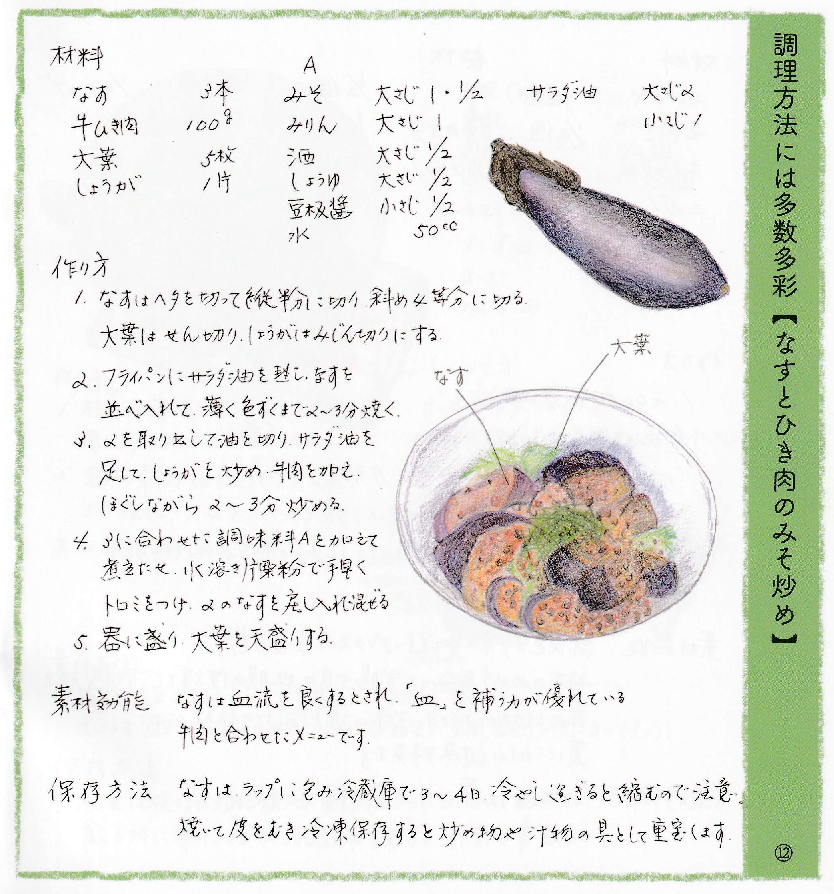 調理方法には多数多彩【なすとひき肉のみそ炒め】
材料
A
なす 3本 みそ 大さじ1・1/2 サラダ油 大さじ2
牛ひき肉 100g みりん 大さじ1 小さじ1
大葉 5枚 酒 大さじ1/2
しょうが 1片 しょうゆ 大さじ1/2
豆板醤 小さじ1/2
水 50cc
作り方
1. なすはヘタを切って縦半分に切り、斜め4等分に切る。
大葉はせん切り、しょうがはみじん切りにする。
2. フライパンにサラダ油を熱し、なすを
並べ入れて、薄く色ずくまで2〜3分焼く。
3. 2を取り出して油を切り、サラダ油を
足して、しょうがを炒め、牛肉を加え、
ほぐしながら2〜3分炒める。
4. 3に合わせた調味料Aを加えて
煮立たせ、水溶き片栗粉で手早く
トロミをつけ、2のなすを戻し入れ混ぜる
5. 器に盛り、大葉を天盛りする。
なす
大葉
素材効能 なすは血流を良くするとされ、「血」を補う力が優れている
牛肉と合わせたメニューです。
保存方法 なすは、ラップに包み冷蔵庫で3〜4日、冷やし過ぎると縮むので注意。
焼いて皮をむき冷凍保存すると炒め物や汁物の具として重宝します。
⑫